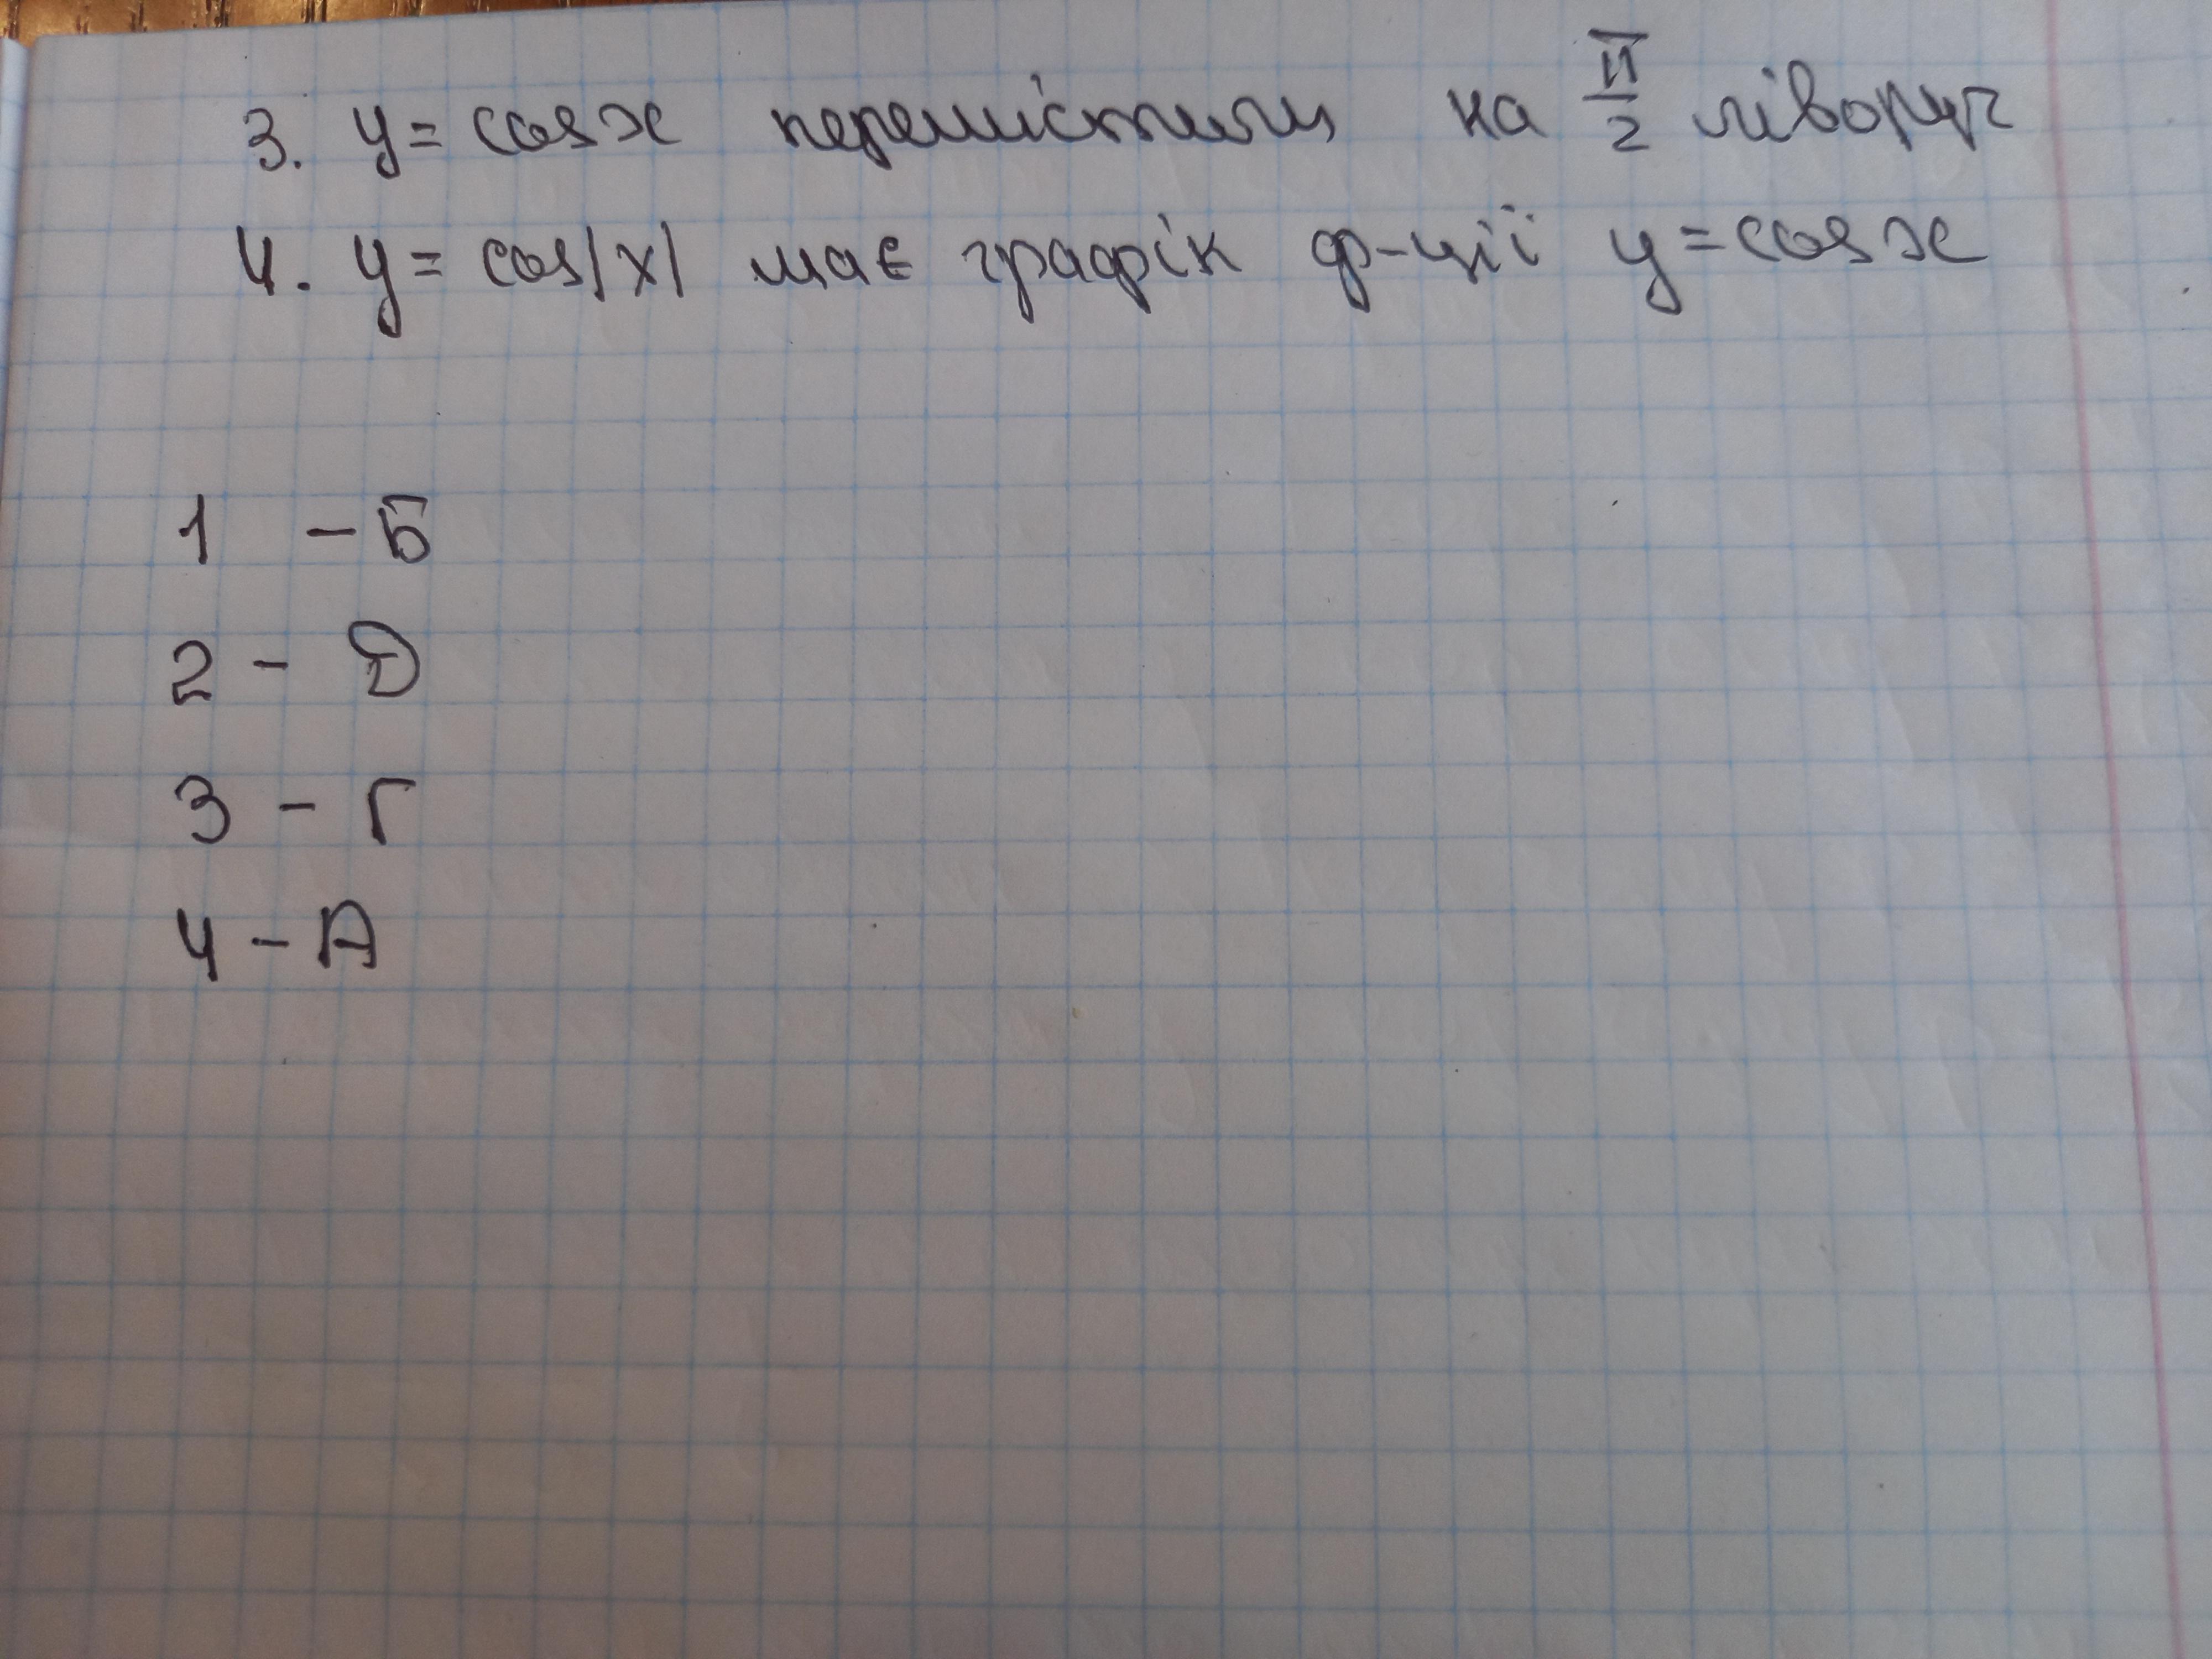 3. y = cos x перемістили на π/2 ліворуч
4. y = cos|x| має графік ф-ції y = cos x
1 - Б
2 - Д
3 - Г
4 - А